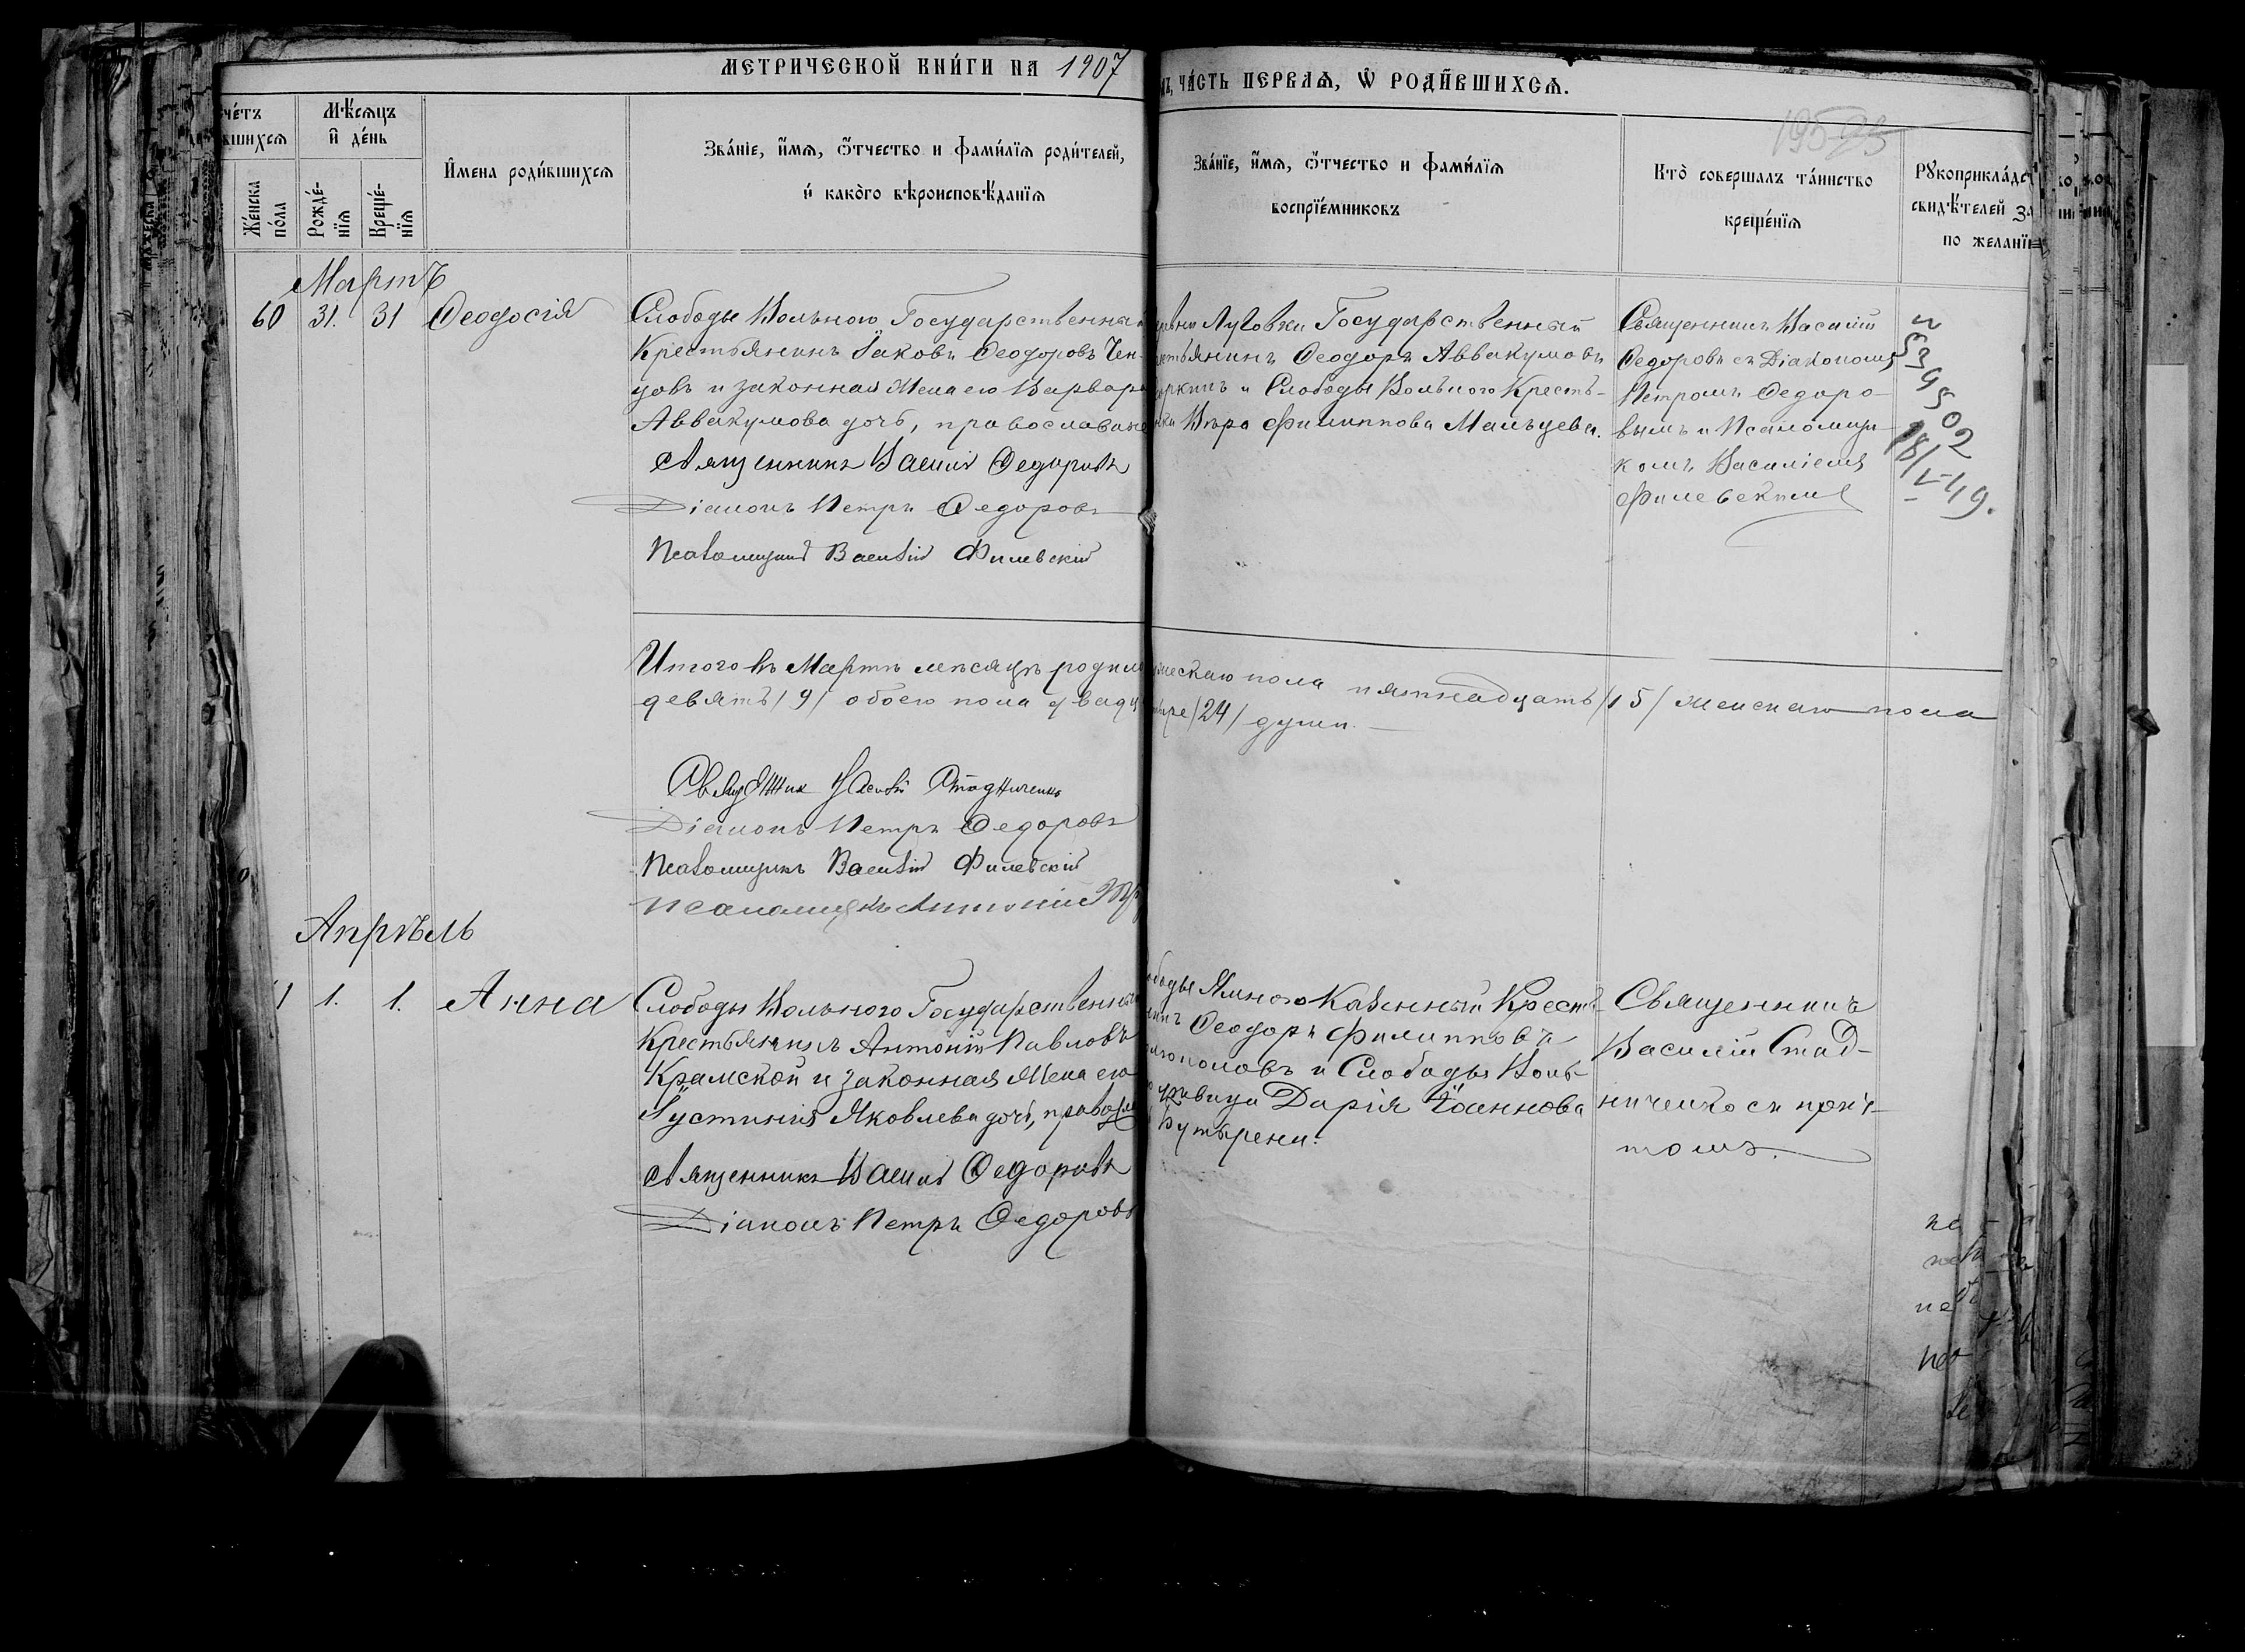 МЕТРИЧЕСКОЙ КНИ́ГИ НА 1907
ЧА́СТЬ ПЕРВАѦ, Ѿ РОДИ́ВШИХСѦ.
195
че́тъ
вшихсѧ
Мѣ́сѧцъ
и҆ де́нь
Же́нска
по́ла
Рожде́-
нїѧ
Креще́-
нїѧ
И҆мена роди́вшихсѧ
Зва́нїе, и҆́мѧ, ѻ҆́тчество и фами́лїѧ роди́телей,
и҆ како̀го вѣроисповѣ́данїѧ
Зва́нїе, и҆́мѧ, ѻ҆́тчество и фами́лїѧ
воспрїе́мниковъ
Кто̀ совершалъ та́инство
креще́нїѧ
Рꙋкоприкла́дс
свидѣ́телей за
по желані
Мартъ
60 31. 31 Ѳеодосія
Слободы Вольного Государственный
Крестьянинъ Іаковъ Ѳеодоровъ Чен-
цовъ и законная жена его Варвара
Аввакумова дочь, православные
Священникъ Василій Ѳедоровъ
Діаконъ Петръ Ѳедоровъ
Псаломщикъ Василій Филевскій
Луговки Государственный
Ѳеодоръ Аввакумовъ
и Слободы Вольного Кресть-
Вѣра Филиппова Мальцева.
Священникъ Василій
Ѳедоровъ съ Діакономъ
Петромъ Ѳедоро-
вымъ и Псаломщи-
комъ Василіемъ
Филевскимъ
18/V-49.
Итого въ Мартѣ мѣсяцѣ родилось мужескаго пола пятнадцать /15/ женскаго пола
девять /9/ обоего пола двадцать четыре /24/ души.
Священник Василій Стадниченко
Діаконъ Петръ Ѳедоровъ
Псаломщикъ Василій Филевскій
Псаломщикъ Антоній
Апрѣль
1 1. 1. Анна
Слободы Вольного Государственный
Крестьянинъ Антоній Павловъ
Крамской и законная жена его
Іустинія Яковлева дочь, православные
Священникъ Василій Ѳедоровъ
Діаконъ Петръ Ѳедоровъ
Слободы Ямного Казенный Кресть-
Ѳеодоръ Филипповъ
и Слободы Воль-
Дарія Іоаннова
Священникъ
Василій Стад-
ниченко съ прич-
томъ.